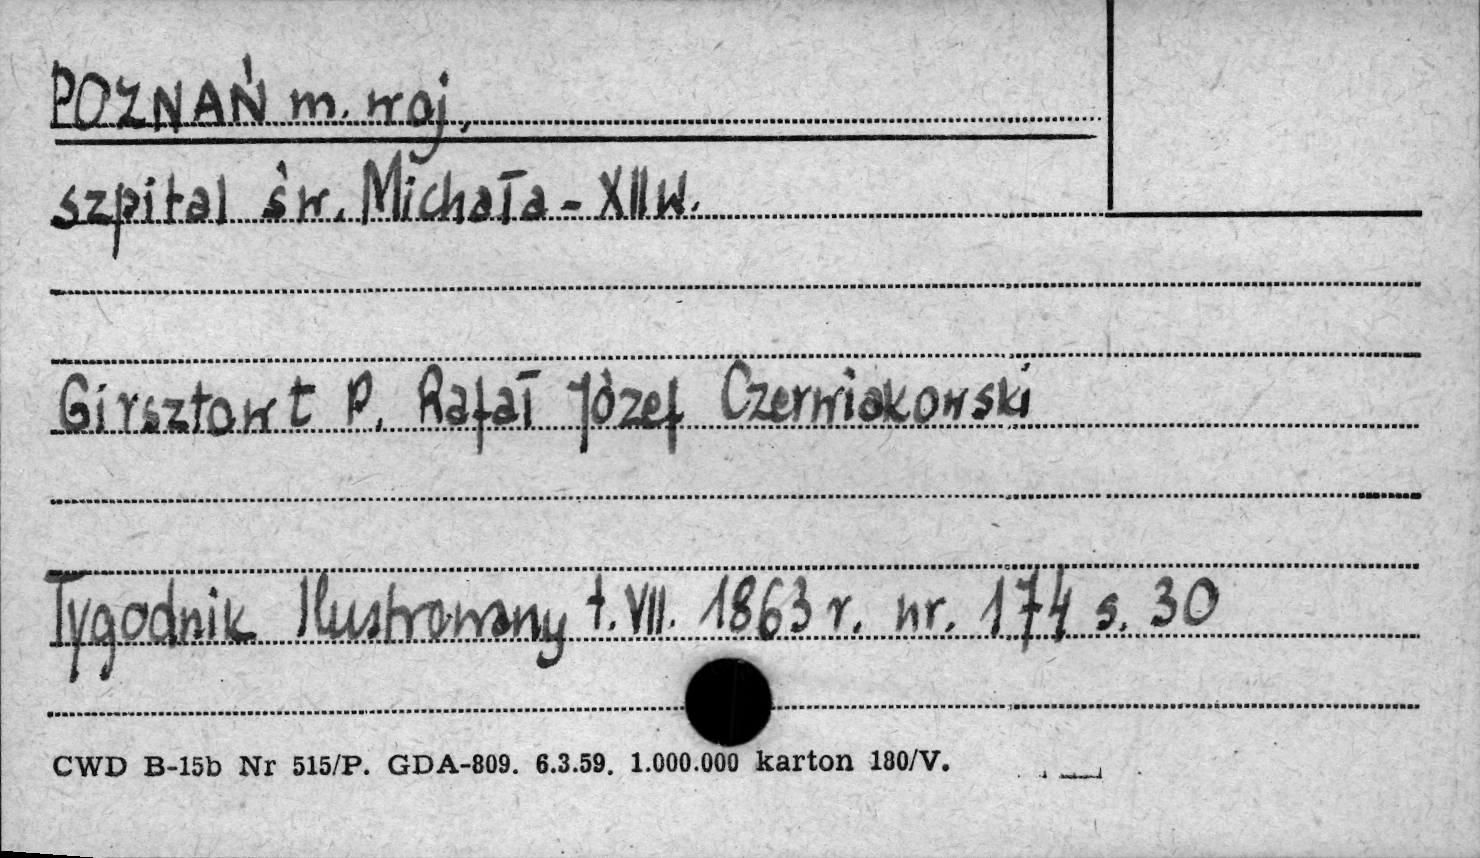 POZNAŃ m. woj.
szpital św. Michała - XII w.
Girsztowt P. Rafał Józef Czerwiakowski
Tygodnik Ilustrowany t. VII. 1863 r. nr. 174 s. 30
CWD B-15b Nr 515/P. GDA-809. 6.3.59. 1.000.000 karton 180/V.